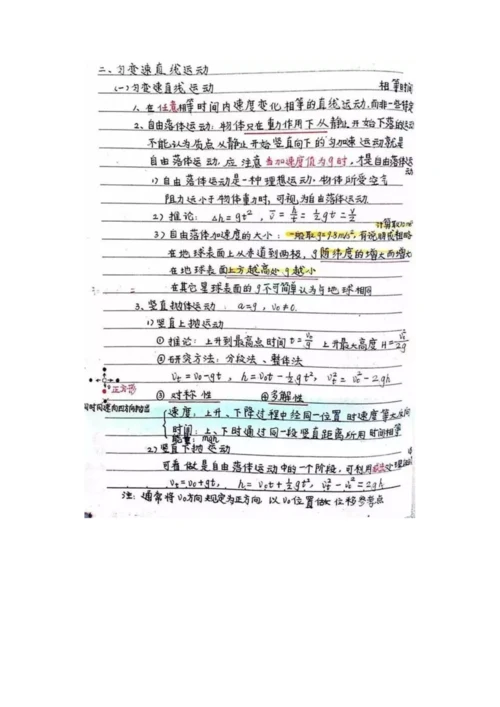 二、匀变速直线运动
(一)匀变速直线运动 相等时间
1、在任意相等时间内速度变化相等的直线运动,而非一些特定
2、自由落体运动:物体只在重力作用下从静止开始下落的运动
不能认为质点从静止开始竖直向下的匀加速运动就是
自由落体运动,应注意当加速度值为g时,才是自由落体运动
1)自由落体运动是一种理想运动。物体所受空气
阻力远小于物体重力时,可视为自由落体运动
2)推论:Δh=gt², v̄=h/t=½gt=v/2
计算取10m/s²
3)自由落体加速度的大小:一般取g=9.8m/s²,有说明或粗略
在地球表面上从赤道到两极,g随纬度的增大而增大
在地球表面上方越高处g越小
在其它星球表面的g不可简单认为与地球相同
3、竖直抛体运动:a=g,v₀≠0.
1)竖直上抛运动
①推论:上升到最高点时间t=v₀/g 上升最大高度H=v₀²/2g
②研究方法:分段法、整体法
vₜ=v₀-gt,h=v₀t-½gt²,vₜ²-v₀²=-2gh
正方形
③对称性 ④多解性
同时同速向四方向抛出
速度:上升、下降过程中经同一位置时速度等大反向
时间:上、下时通过同一段竖直距离所用时间相等
能量:mgh
2)竖直下抛运动
可看做是自由落体运动中的一个阶段,可利用处理
vₜ=v₀+gt, h=v₀t+½gt², vₜ²-v₀²=2gh
注:通常将v₀方向规定为正方向,以v₀位置做位移参考点